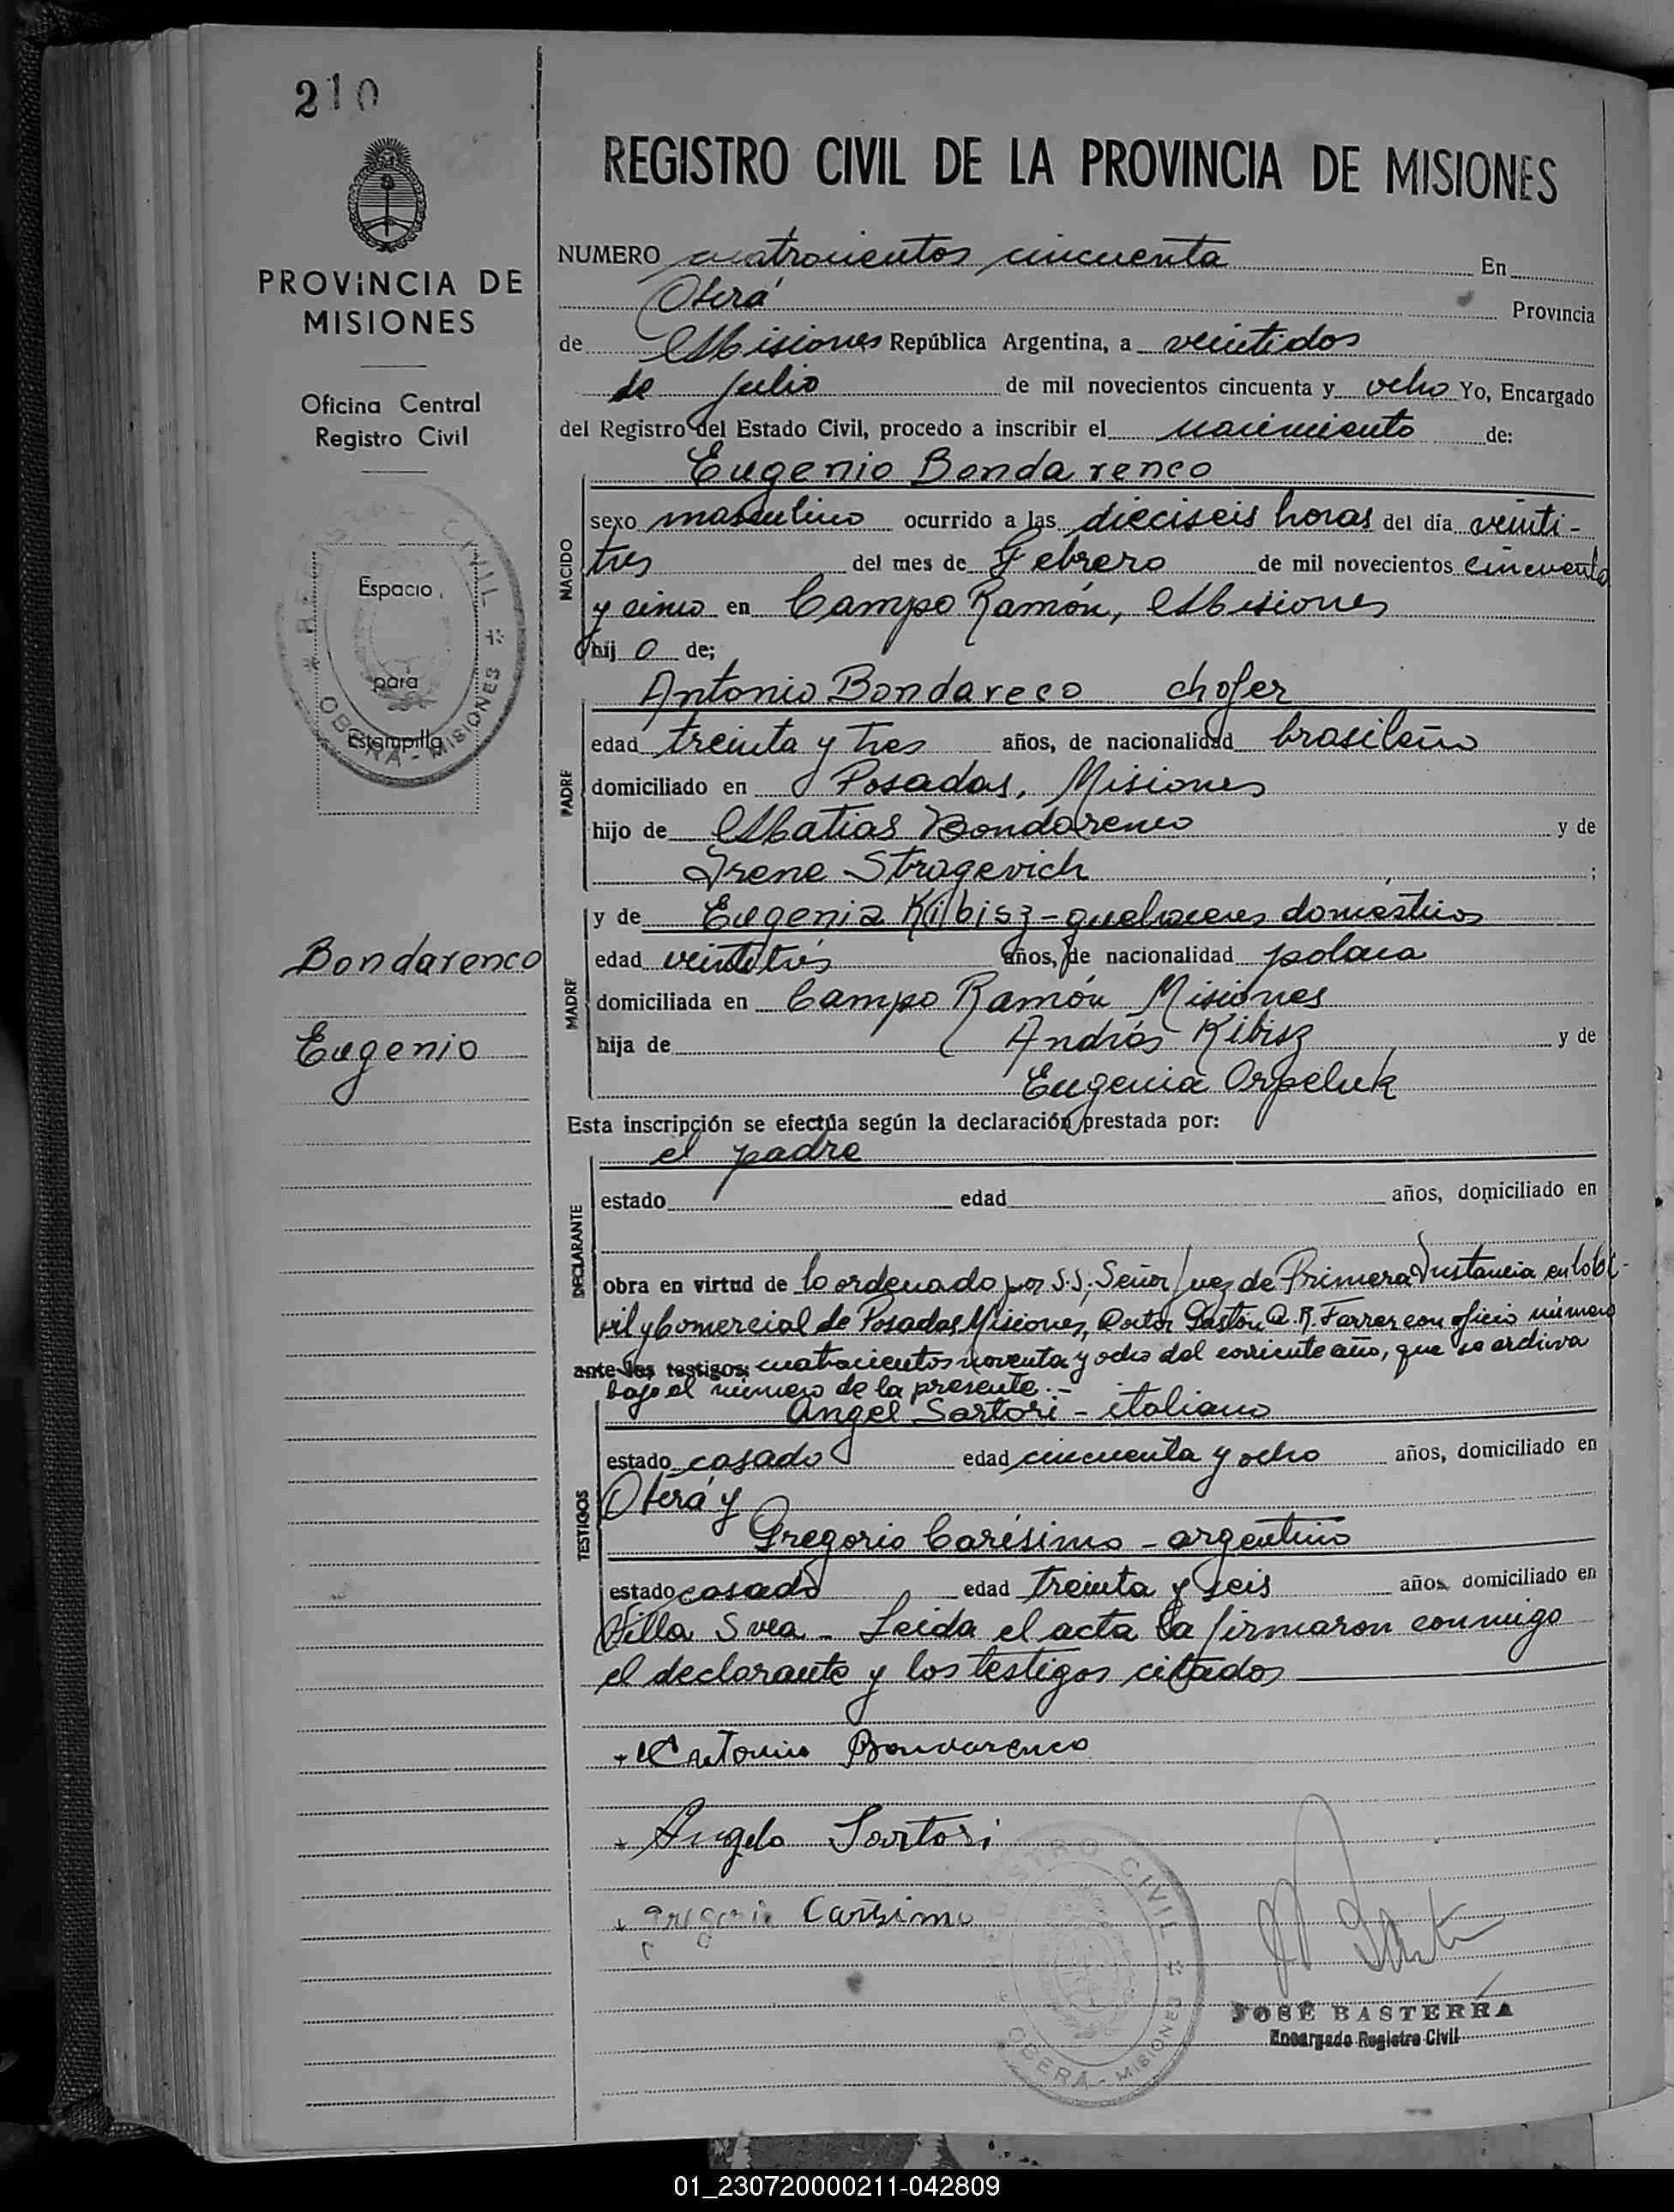 210
REGISTRO CIVIL DE LA PROVINCIA DE MISIONES
PROVINCIA DE
MISIONES
Oficina Central
Registro Civil
REGISTRO CIVIL
OBERA - MISIONES
Espacio
para
Estampilla
Bondarenco
Eugenio
NUMERO cuatrocientos cincuenta En
Oberá Provincia
de Misiones República Argentina, a veintidos
de julio de mil novecientos cincuenta y ocho Yo, Encargado
del Registro del Estado Civil, procedo a inscribir el nacimiento de:
Eugenio Bondarenco
NACIDO
sexo masculino ocurrido a las dieciseis horas del día veinti-
tres del mes de Febrero de mil novecientos cincuenta
y cinco en Campo Ramón, Misiones
hijo de;
Antonio Bondareco chofer
PADRE
edad treinta y tres años, de nacionalidad brasileño
domiciliado en Posadas, Misiones
hijo de Matias Bondarenco y de
Irene Stragevich ;
MADRE
y de Eugenia Kibisz - quehaceres domesticos
edad veintitrés años, de nacionalidad polaca
domiciliada en Campo Ramón Misiones
hija de Andrés Kibisz y de
Eugenia Orpeluk
Esta inscripción se efectúa según la declaración prestada por:
el padre
DECLARANTE
estado edad años, domiciliado en
obra en virtud de lo ordenado por S.S. Señor Juez de Primera Instancia en lo Ci-
vil y Comercial de Posadas Misiones, Doctor Gastón A. R. Farrer con oficio número
ante los testigos: cuatrocientos noventa y ocho del corriente año, que se archiva
bajo el número de la presente.-
Angel Sartori - italiano
TESTIGOS
estado casado edad cincuenta y ocho años, domiciliado en
Oberá y
Gregorio Carísimo - argentino
estado casado edad treinta y seis años, domiciliado en
Villa Svea - Leida el acta la firmaron conmigo
el declarante y los testigos citados
Antonio Bondarenco
Angelo Sartori
Gregorio Carisimo
REGISTRO CIVIL
OBERA - MISIONES
JOSÉ BASTERRA
Encargado Registro Civil
01_230720000211-042809